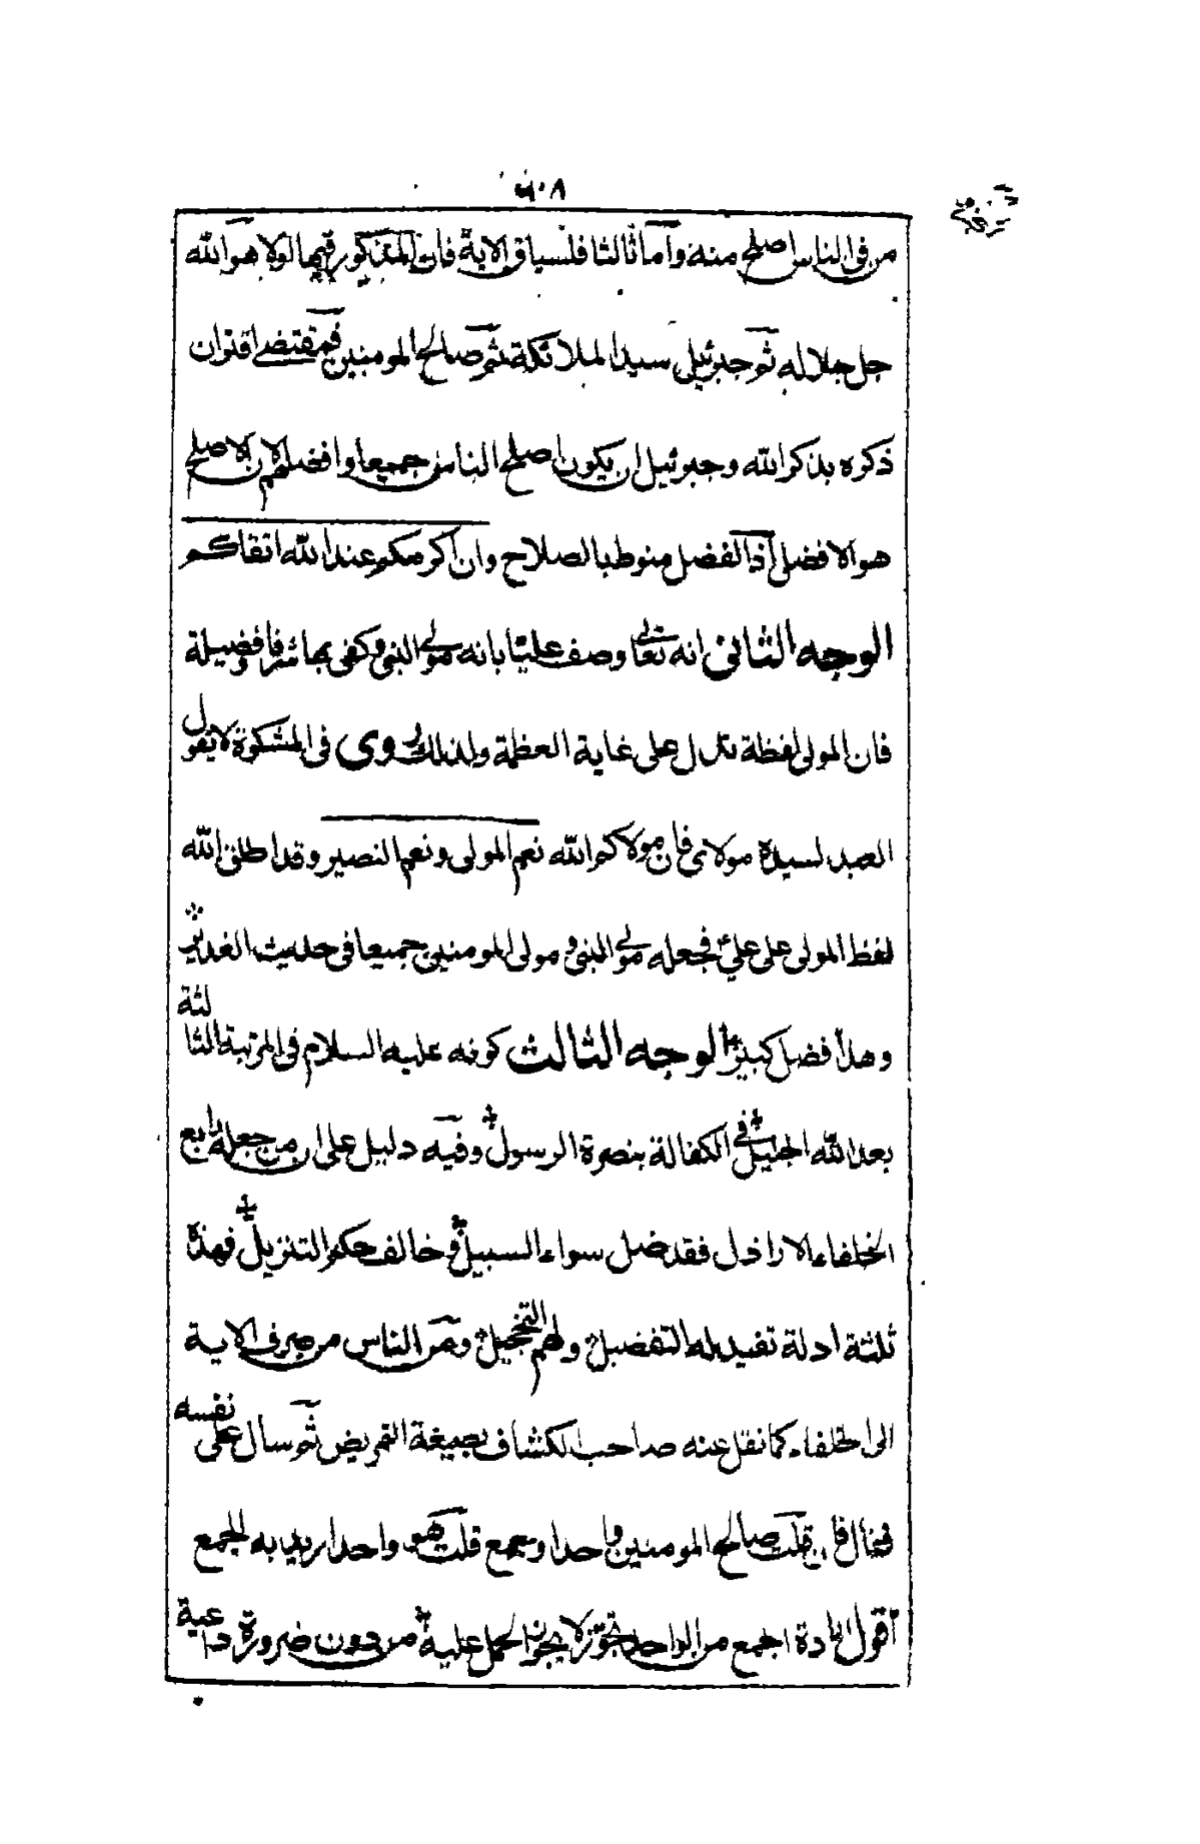 ٦٠٨
من في الناس اصلح منه وآما ثالثا فلسياق الاية فان المذكور فيها اولا هو الله
جل جلاله ثم جبرئيل سيد الملائكة ثم صالح المومنين فمقتضى اقتران
ذكره بذكر الله وجبرئيل ان يكون اصلح الناس جميعا وافضلهم لان الاصلح
هو الافضل اذ الفضل منوط بالصلاح وان اكرمكم عند الله اتقاكم
الوجه الثانى انه تعالى وصف عليّا بانه مولى النبى وكفى بها شرفا وفضيلة
فان المولى لفظة تدل على غاية العظمة ولذلك روى فى المشكوة لا يقول
العبد لسيده مولاى فان مولاكم الله نعم المولى ونعم النصير وقد اطلق الله
لفظ المولى على علىّ فجعله مولى النبى و مولى المومنين جميعا فى حديث الغدير
وهذا فضل كبير الوجه الثالث كونه عليه السلام فى المرتبة الثالثة
بعد الله الجليل فى الكفالة بنصرة الرسول وفيه دليل على ان من جعله رابع
الخلفاء الاراذل فقد ضل سواء السبيل و خالف حكم التنزيل فهذه
ثلثة ادلة تفيد له التفضيل ولهم التخجيل ومن الناس من صرف الاية
الى الخلفاء كما نقل عنه صاحب الكشاف بصيغة التمريض ثم سال على نفسه
فقال فان قلت صالح المومنين واحد او جمع قلت هو واحد اريد به الجمع
آقول ارادة الجمع من الواحد تجوّز لا يجوز الحمل عليه من دون ضرورة داعية